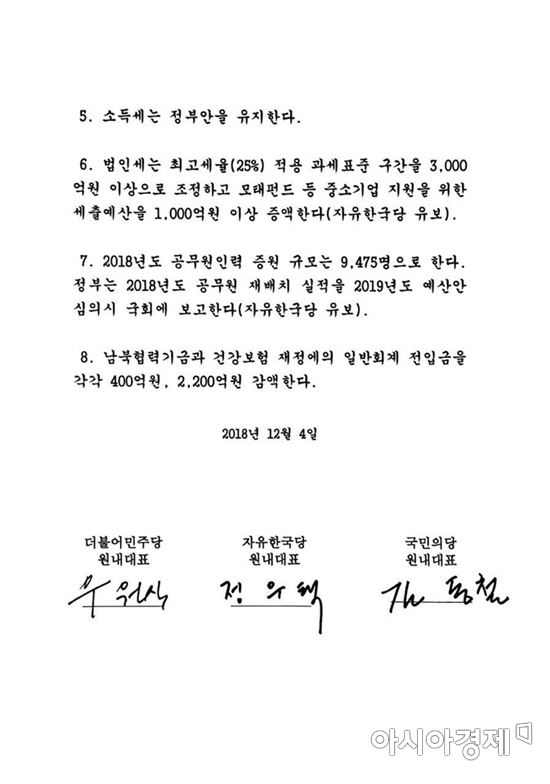 5. 소득세는 정부안을 유지한다.
6. 법인세는 최고세율(25%) 적용 과세표준 구간을 3,000
억원 이상으로 조정하고 모태펀드 등 중소기업 지원을 위한
세출예산을 1,000억원 이상 증액한다(자유한국당 유보).
7. 2018년도 공무원인력 증원 규모는 9,475명으로 한다.
정부는 2018년도 공무원 재배치 실적을 2019년도 예산안
심의시 국회에 보고한다(자유한국당 유보).
8. 남북협력기금과 건강보험 재정에의 일반회계 전입금을
각각 400억원, 2,200억원 감액한다.
2018년 12월 4일
더불어민주당 자유한국당 국민의당
원내대표 원내대표 원내대표
우원식 정우택 김동철
아시아경제